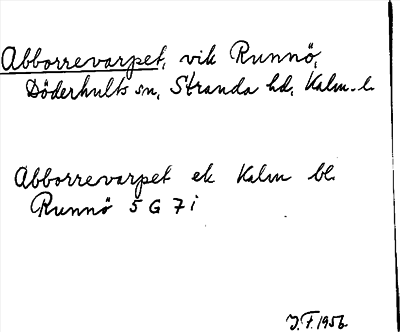 Abborrevarpet, vik Runnö,
Döderhults sn, Stranda hd, Kalm. l.
Abborrevarpet ek Kalm bl.
Runnö 5 G 7 i
J.F. 1956